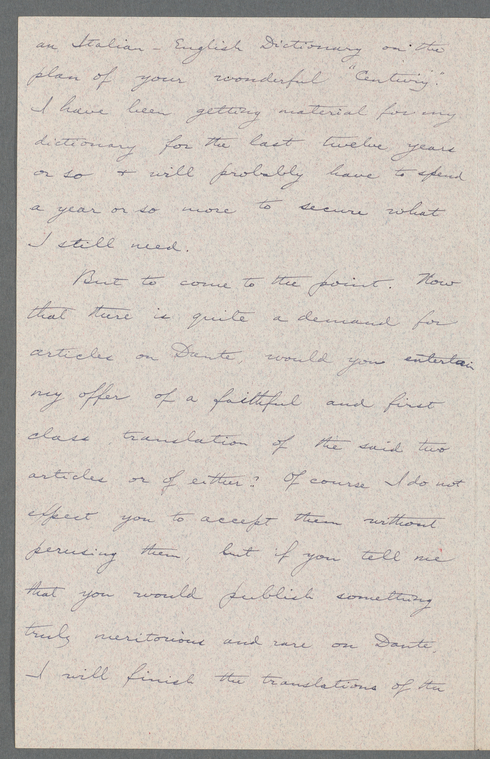 an Italian - English Dictionary on the
plan of your wonderful "Century."
I have been getting material for my
dictionary for the last twelve years
or so + will probably have to spend
a year or so more to secure what
I still need.
But to come to the point. Now
that there is quite a demand for
articles on Dante, would you entertain
my offer of a faithful and first
class translation of the said two
articles or of either? Of course I do not
expect you to accept them without
perusing them, but if you tell me
that you would publish something
truly meritorious and rare on Dante,
I will finish the translations of the